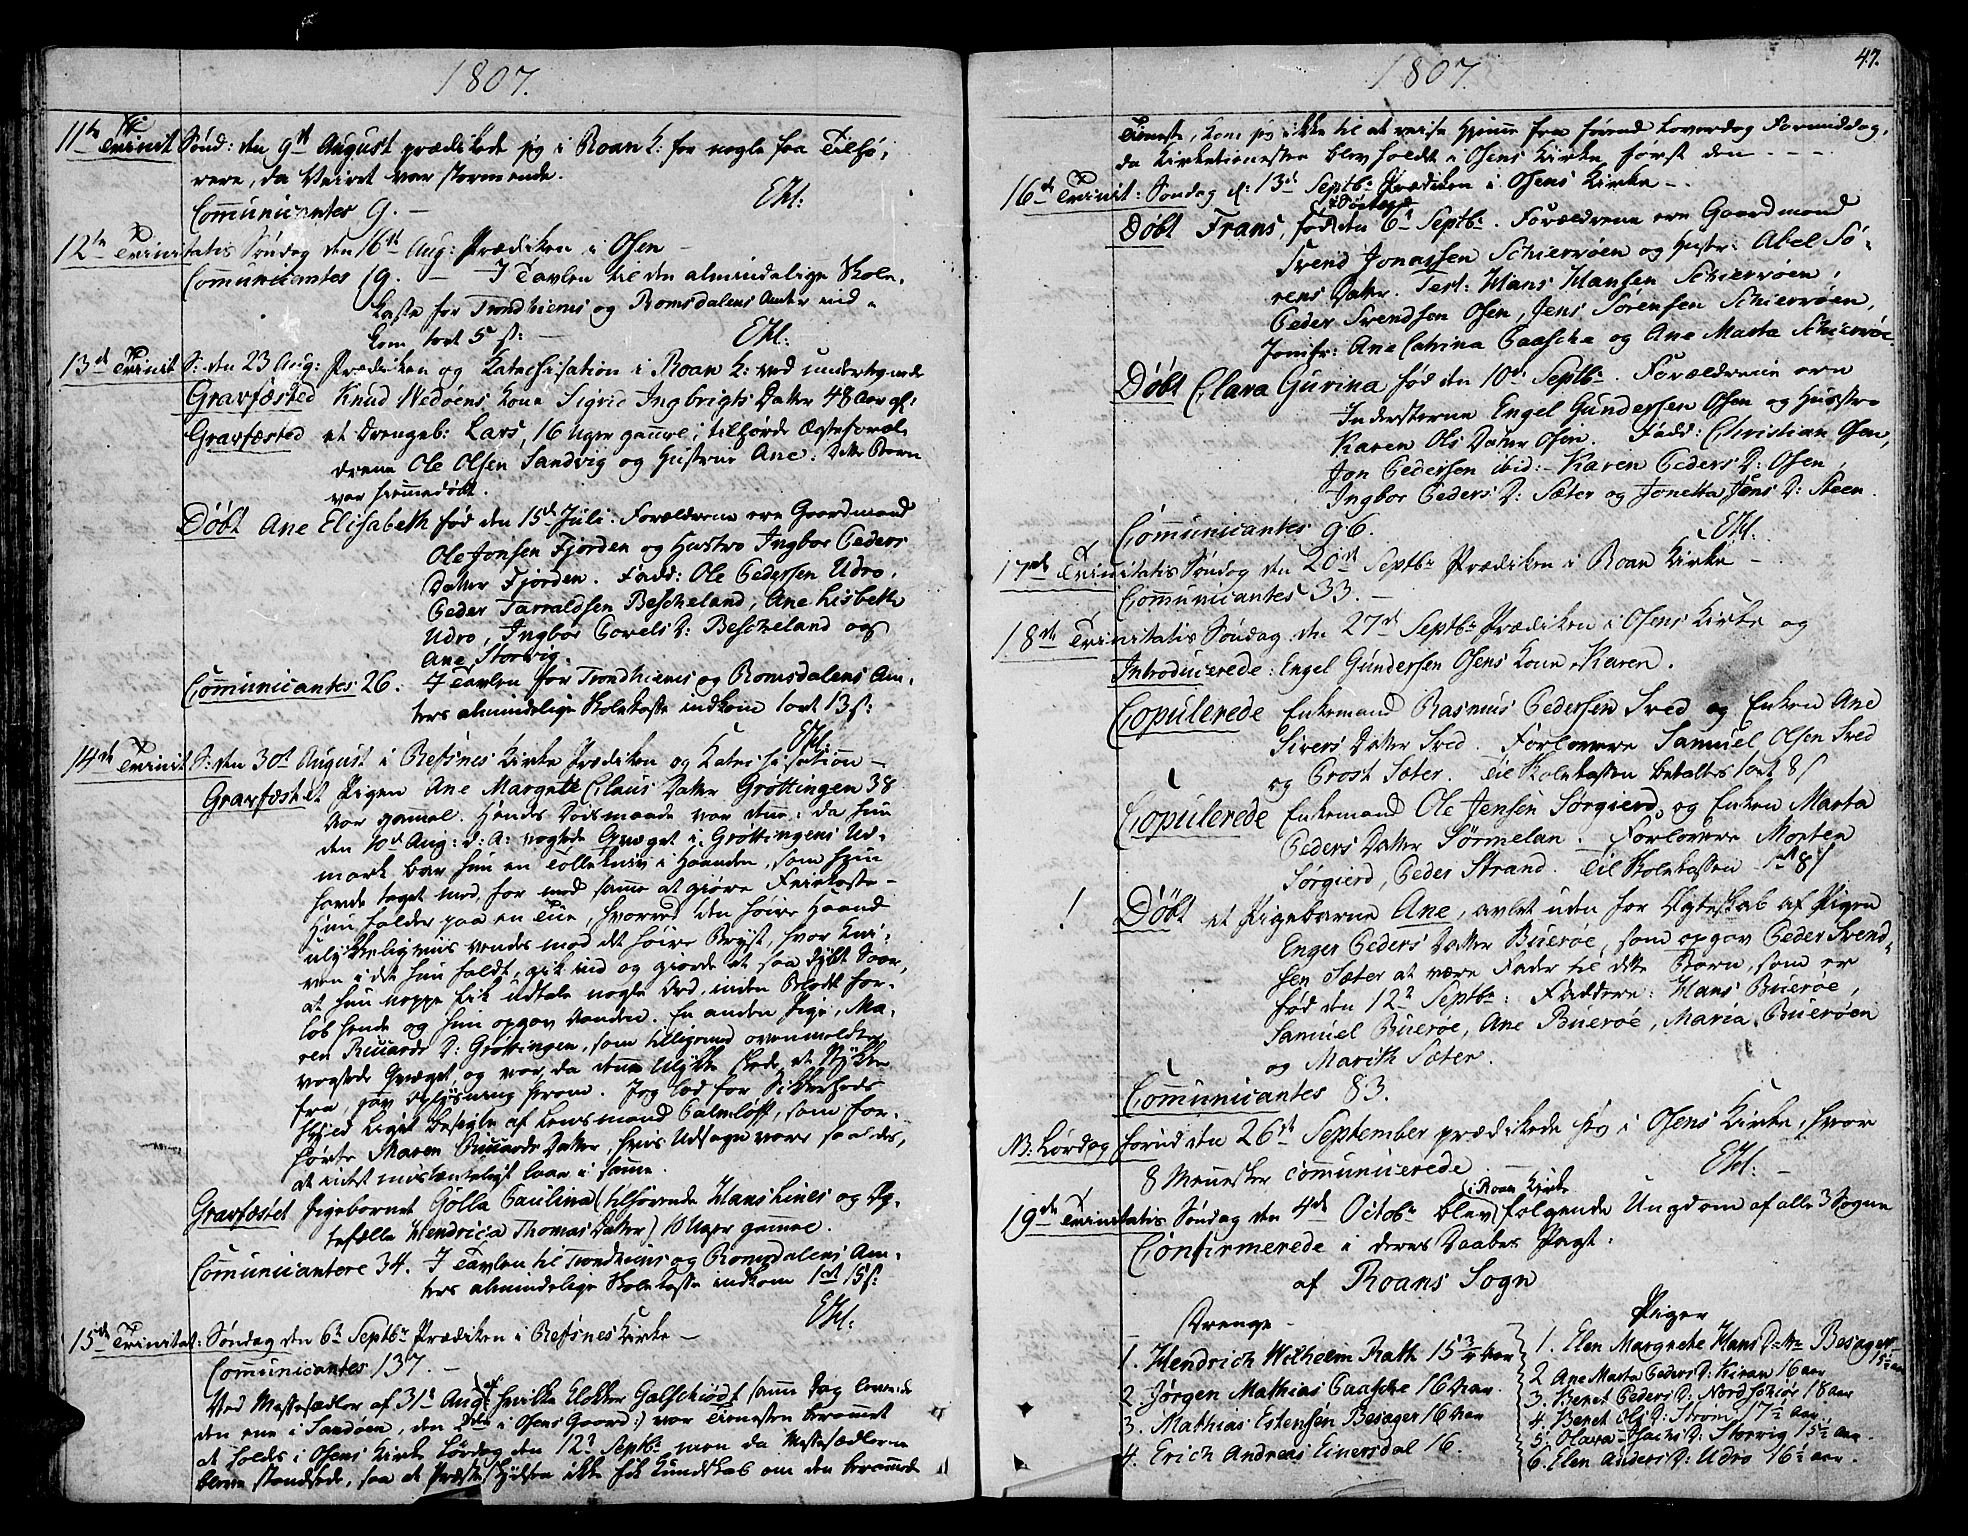 1807.
11te Trinit Sønd: den 9de August prædikede jeg i Roan K: for nogle faa Tilhø,
rere, da Veiret var stormende.
Communicantes 9. — EKl:
12te Trinitatis Søndag den 16de Aug: Prædiken i Osen —
Communicantes 19. — I Tavlen til den almindelige Skole
Casse for Trondhiems og Romsdalens Amter ind-
kom 1ort 5 s: — EKl:
13de Trinit S: den 23 Aug: Prædiken og Katechisation i Roan K: ved undertegnede
Gravfæsted Knud Nedøens Kone Sigrid Ingbrigts Datter 48 Aar gl:
Gravfæsted et Drengeb: Lars, 16 Uger gammel, tilhørde Ægteforæl
drene Ole Olsen Sandvig og Hustrue Ane. Dette Barn
var hiemmedøbt.
Døbt Ane Elisabeth født den 15de Juli. Forældrene ere Gaardmand
Ole Jonsen Fjorden og Hustro Ingbor Peders
Datter Fjorden. Fadd: Ole Pedersen Udro,
Peder Tarraldsen Bescheland, Ane Lisbeth
Udro, Ingbor Povels D: Bescheland og
Ane Storvig.
Communicantes 26. I Tavlen for Trondhiems og Romsdalens Am-
ters almindelige Skolekasse indkom 1ort 13 s:
EKl:
14de Trinit S: den 30te August i Refsnes Kirke Prædiken og Katechisation —
Gravfæstet Pigen Ane Margete Claus Datter Grøttingen 38
Aar gammel. Hendes Dødsmaade var denne: da hun
den 10de Aug: d: A: vogtede Qvæget i Grøttingens Ud-
mark bar hun en Tollekniv i Haanden, som hun
havde taget med, for med samme at giøre
Hun falder paa en Tue, hvorved den høire Haand
ulykkeligviis vendes mod det høire Bryst, hvor Kni-
ven i det hun faldt, gik ind og giorde et saa dybt Saar,
at hun neppe fik udtale nogle Ord, inden Blodet for-
lod hende og hun opgav Aanden. En anden Pige, Ma-
ren D: Grøttingen, som tilligemed ovenmeldte
vogtede Qvæget og var, da denne Ulykke skede, et Stykke
fra, gav Oplysning herom. Jeg lod for Sikkerheds
Skyld Liget besigte af Lensmand Palmløff, som for-
hørte Maren Datter, hvis Udsagn vare saaledes,
at intet mistænkeligt laae i samme.
Gravfæstet Pigebarnet Golla Paulina (tilhørende Hans Lines og Æg-
tefælle Hendrica Thomas Datter) 10 Uger gammel.
Communicantere 34. I Tavlen til Trondhiems og Romsdalens Am-
ters almindelige Skolekasse indkom 1ort 15 s:
EKl:
15de Trinitat: Søndag den 6te Septbr Prædiken i Refsnes Kirke —
Communicantes 137. —
Ved Messesedler af 31te Aug: hvilke Klokker Galschiødt samme Dag leverede
den ene i Sandøen, den 2den i Osens Gaard:) var Tienesten berammet
at holdes i Osens Kirke Lørdag den 12te Septbr men da Messesedlerne
bleve standsede, saa at Præsten ikke fik Kundskab om den berammede
1807. 47.
Tieneste, kom jeg ikke til at reise hiemme fra førend Loverdag Formiddag,
da Kirketienesten blev holdt i Osens Kirke først den - - -
16de Trinit: Søndag d: 13de Septbr Prædiken i Osens Kirke —
Døbt Frans, født den 6te Septbr. Forældrene ere Gaardmand
Svend Jonassen Schiervøen og Hustr: Abel Sø-
rens Datter. Test: Hans Hansen Schiervøen,
Peder Svendsen Osen, Jens Sørensen Schiervøen,
Jomfr: Ane Catrina Paasche og Ane Marta Schiervøe.
Døbt Clara Gurina født den 10de Septbr. Forældrene ere
Inderstene Engel Gundersen Osen og Hustro
Karen Ols Datter Osen. Fadd: Christian Osen,
Jon Pedersen ibid: — Karen Peders D: Osen,
Ingbor Peders D: Sæter og Jonetta Jens D: Steen.
Communicantes 96. EKl:
17de Trinitatis Søndag den 20de Septbr Prædiken i Roan Kirke —
Communicantes 33. —
18de Trinitatis Søndag den 27de Septbr Prædiken i Osens Kirke og
Introducerede: Engel Gundersen Osens Kone Karen.
Copulerede Enkemand Rasmus Pedersen Sved og Enken Ane
Sivers Datter Sved. Forlovere Samuel Olsen Sved
og Prost Sæter. Til Skolekassen betaltes 1ort 8 s
Copulerede Enkemand Ole Jensen Sørgierd, og Enken Marta
Peders Datter Sørmelan. Forlovere Morten
Sørgierd, Peder Strand. Til Skolekassen 1ort 8 s
! Døbt et Pigebarne Ane, avlet uden for Ægteskab af Pigen
Enger Peders Datter Buerøe, som opgav Peder Svend-
sen Sæter at være Fader til dette Barn, som er
født den 12te Septbr: Faddere: Hans Buerøe,
Samuel Buerøe, Ane Buerøe, Maria Buerøen
og Marith Sæter.
Communicantes 83.
NB: Lørdag forud den 26de September prædikede jeg i Osens Kirke, hvor
8 Mennesker communicerede. EKl: —
19de Trinitatis Søndag den 4de Octobr blev (i Roan Kirke følgende Ungdom af alle 3 Sogne
Confirmerede i deres Daabes Pagt:
af Roans Sogn
Drenge —
1. Hendrich Wilhelm Rath 15 3/4 Aar
2. Jørgen Mathias Paasche 16 Aar.
3. Mathias Estensen Besager 16 Aar
4. Erich Andreas Einersdal 16.
Piger
1. Elen Margrete Hans Dattr Besager 15 1/2 Aar
2 Ane Marta Peders D: Kiran 16 Aar
3. Beret Peders D: Nordschiør 18 Aar
4. Beret Ols D: Strøm 17 1/2 Aar
5. Olava Isachs D: Storvig 15 1/2 Aar.
6. Elen Anders D: Udro 16 1/2 Aar.